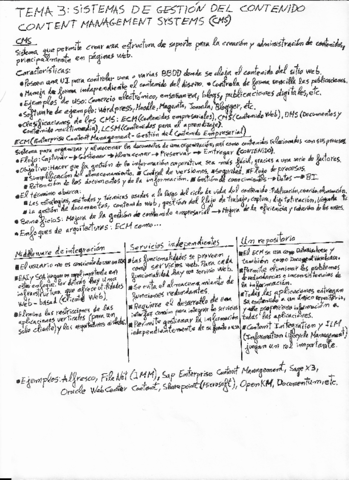 TEMA 3: SISTEMAS DE GESTIÓN DEL CONTENIDO
CONTENT MANAGEMENT SYSTEMS (CMS)
CMS
Sistema que permite crear una estructura de soporte para la creación y administración de contenidos,
principalmente en páginas web.
Características:
• Posee una UI para controlar una o varias BBDD donde se aloja el contenido del sitio web.
• Maneja de forma independiente el contenido del diseño. • Controla de forma sencilla las publicaciones.
• Ejemplos de uso: Comercio electrónico, enseñanza, blogs, publicaciones digitales, etc.
• Software de ejemplo: Wordpress, Moodle, Magento, Joomla, Blogger, etc.
• Clasificaciones de los CMS: ECM (contenidos empresariales), CMS (contenidos web), DMS (documentos y
contenido multimedia), LCSM (contenidos para el aprendizaje).
ECM (Enterprise Content Management - Gestión del Contenido Empresarial)
Sistema para organizar y almacenar la documentación de una organización, así como contenidos relacionados con sus procesos.
• Capturar → Gestionar → Almacenar → Preservar → Entregar (CONTENIDO).
• Objetivo: Hacer que la gestión de la información corporativa sea más fácil, gracias a una serie de factores.
• Simplificación del almacenamiento. • Control de versiones. • Seguridad. • de procesos.
• Retención de los documentos y de la información. • Gestión del conocimiento → Datos → BI.
• El término abarca:
• Las estrategias, métodos y técnicas usados a lo largo del ciclo de vida del contenido
• La gestión de documentos, contenido web, gestión del flujo de trabajo, captura, digitalización
• Beneficios: Mejora de la gestión de contenido empresarial → Mejora de la eficiencia y reducción de los costes.
• Enfoques de arquitecturas: ECM como...
Middleware de integración
• El usuario no es
• EAI y SOA juegan un papel importante en
este enfoque.
infraestructura que ofrece utilidades
Web-based (cliente web)
• Elimina las restricciones de las
aplicaciones verticales (para un
solo cliente) y las arquitecturas
Servicios independientes
• Las funcionalidades se proveen
como servicios web. Para cada
funcionalidad hay un servicio Web.
• Se evita el almacenamiento de
funciones redundantes.
• Requiere el desarrollo de una
interfaz común para integrar los servicios
• Permite gestionar la información
independientemente de su fuente o uso
Un repositorio
• El ECM se usa como
también como
• Permite eliminar los problemas
de redundancias e inconsistencias de
la información.
• Todas las aplicaciones entregan
su contenido a un único repositorio,
y este proporciona información a
todas las aplicaciones.
• Content Integration y ILM
(Information Lifecycle Management)
juegan un rol importante.
• Ejemplos: Alfresco, FileNet (IBM), Sap Enterprise Content Management, Sage X3,
Oracle WebCenter Content, Sharepoint (Microsoft), OpenKM, Documentum, etc.